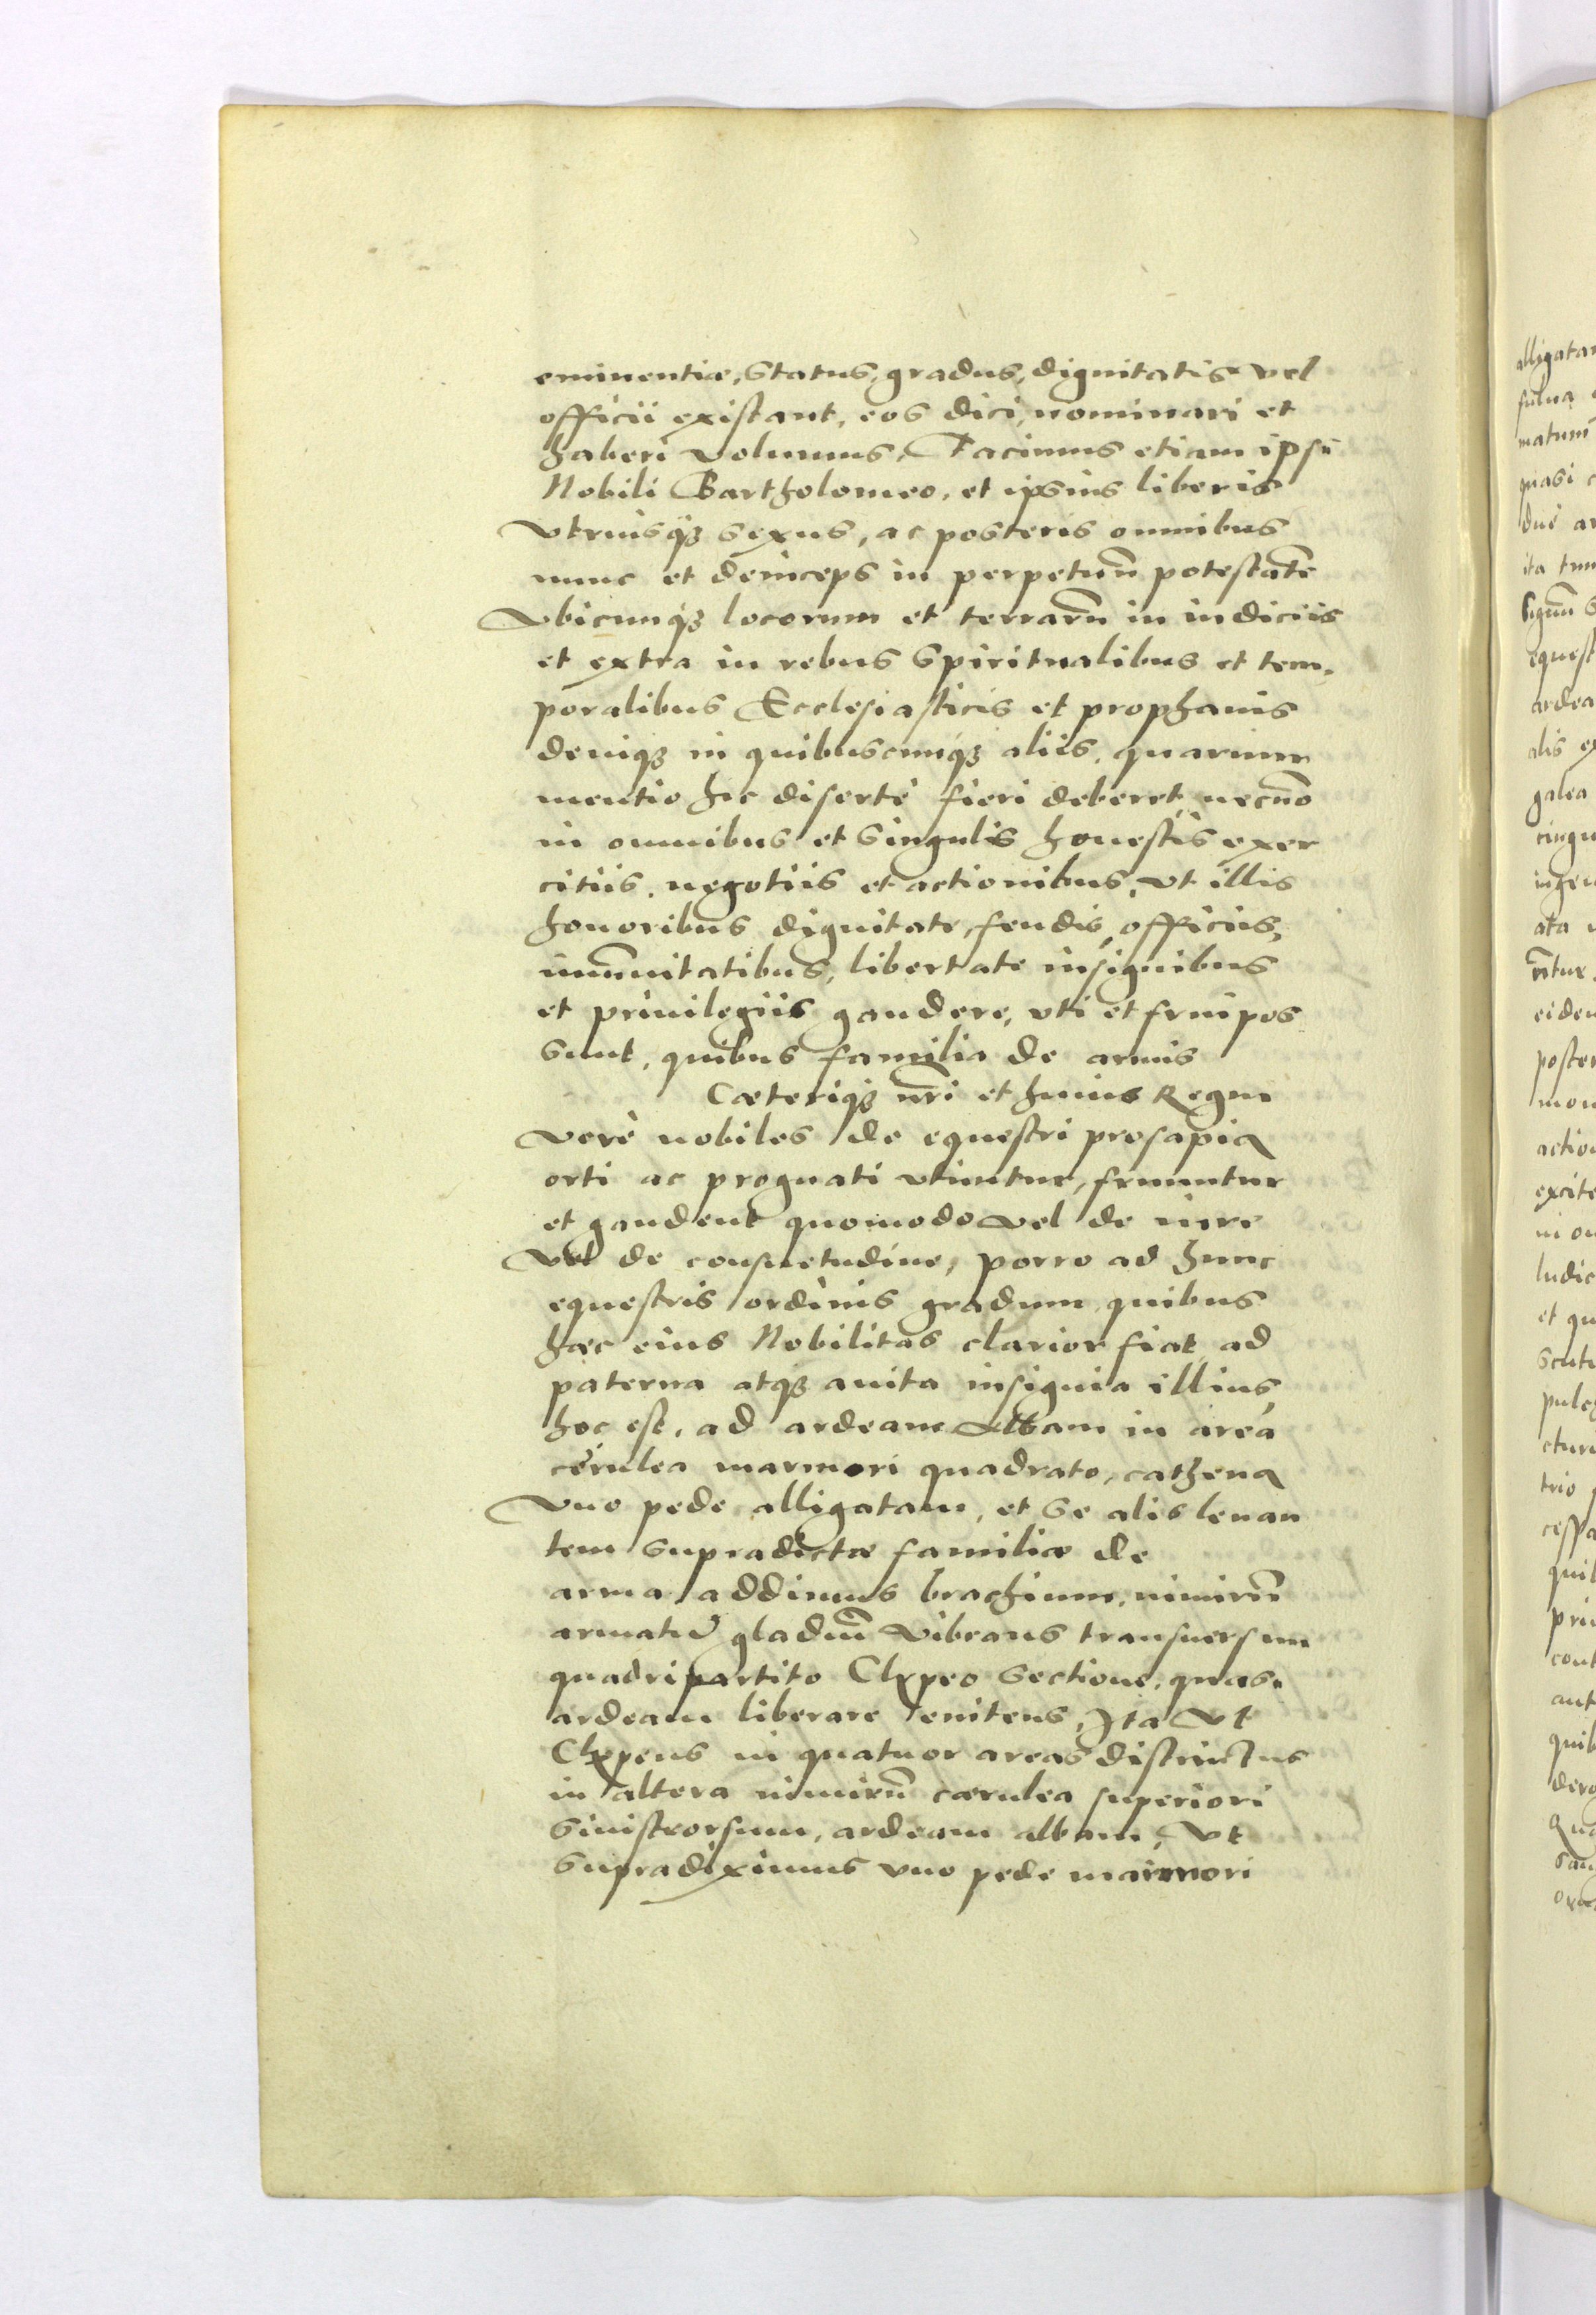 eminentiæ, status, gradus, dignitatis vel
officii existant, eos dici, nominari et
haberi volumus, Facimus etiam ipsi
Nobili Bartholomeo, et ipsius liberis
vtriusq3 sexus, ac posteris omnibus
nunc et deinceps in perpetuũ potestatẽ
Vbicunq3 locorum et terrarũ in iudiciis
et extra in rebus spiritualibus et tem,
poralibus Ecclesiasticis et prophanis
deniq3 in quibuscunq3 aliis, quarum
mentio hic disertè fieri deberet, necnõ
in omnibus et singulis honestis exer
citiis, negotiis et actionibus, vt illis
honoribus dignitate, feudis, officiis,
imũnitatibus, libertate insignibus
et priuilegiis gaudere, vti et frui pos
sunt, quibus familia de armis
Cæteriq3 nr̃i et huius Regni
verè nobiles de equestri prosapia
orti ac prognati vtuntur, fruuntur
et gaudent quomodo vel de iure
vel de consuetudine, porro ad hunc
equestris ordinis gradum, quibus
hæc eius Nobilitas clarior fiat, ad
paterna atq3 auita insignia illius,
hoc est, ad ardeam albam in area
cerulea marmori quadrato, cathena
vno pede alligatam, et se alis leuan
tem supradictæ familiæ de
arma addimus brachium, nimirũ
armatũ gladiũ vibrans transuersum
quadripartito Clypeo sectione, quasi
ardeam liberare enitens, Ita vt
Clypeus in quatuor areas districtus
in altera nimirũ cærulea superiori
sinistrorsum, ardeam albam, vt
supradiximus vno pede marmori
alligata
fulua
matum
quasi
equest
ardea
alis ex
galea
poster
mon
actio
excite
ludic
et qu
trio